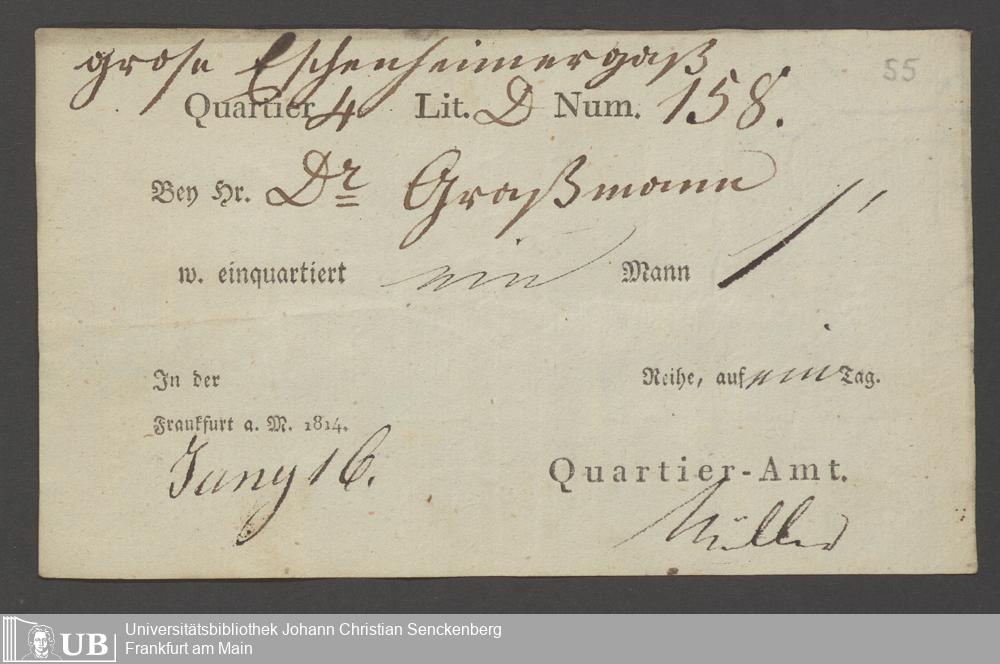 grose Eschenheimergaß
55
Quartier 4 Lit. D Num. 158.
Bey Hr. Dr Graßmann
w. einquartiert ein Mann 1
In der Reihe, auf ein Tag.
Frankfurt a. M. 1814.
Juny 16.
Quartier-Amt.
Müller
UB
Universitätsbibliothek Johann Christian Senckenberg
Frankfurt am Main